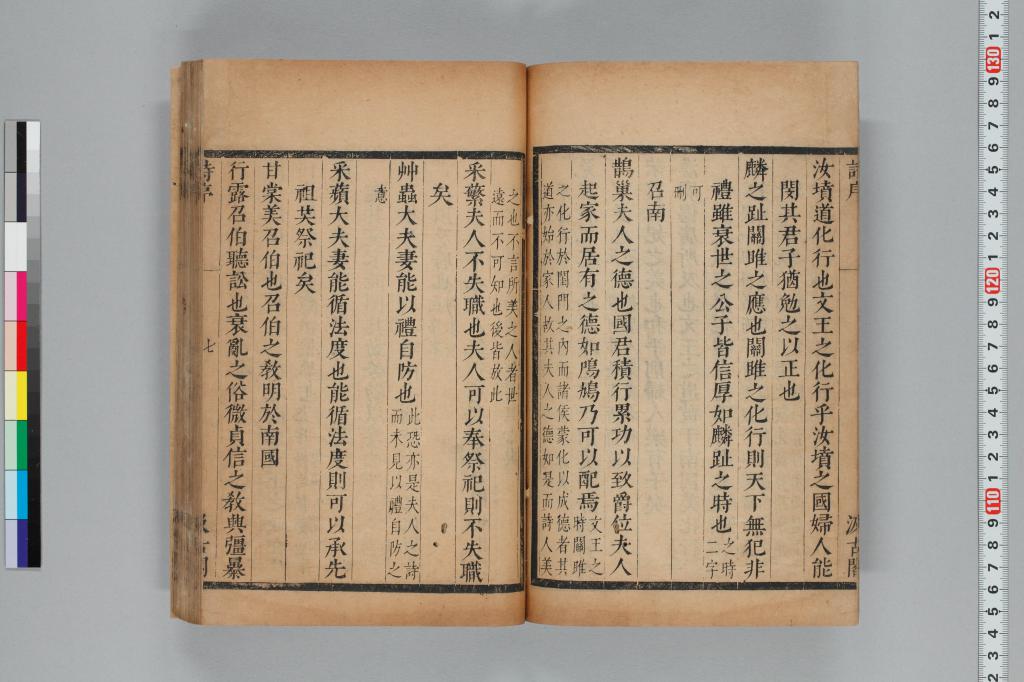 汝墳道化行也文王之化行乎汝墳之國婦人能
閔其君子猶勉之以正也
麟之趾關雎之應也關雎之化行則天下無犯非
禮雖衰世之公子皆信厚如麟趾之時也之時二字
可刪
召南
鵲巢夫人之德也國君積行累功以致爵位夫人
起家而居有之德如鳲鳩乃可以配焉文王之時關雎
之化行於閨門之內而諸侯蒙化以成德者其
道亦始於家人故其夫人之德如是而詩人美
之也不言所美之人者世
遠而不可知也後皆放此
采蘩夫人不失職也夫人可以奉祭祀則不失職
矣
艸蟲大夫妻能以禮自防也此恐亦是夫人之詩而未見以禮自防之
意
采蘋大夫妻能循法度也能循法度則可以承先
祖共祭祀矣
甘棠美召伯也召伯之教明於南國
行露召伯聽訟也衰亂之俗微貞信之教興彊暴
詩序
七
汲古閣